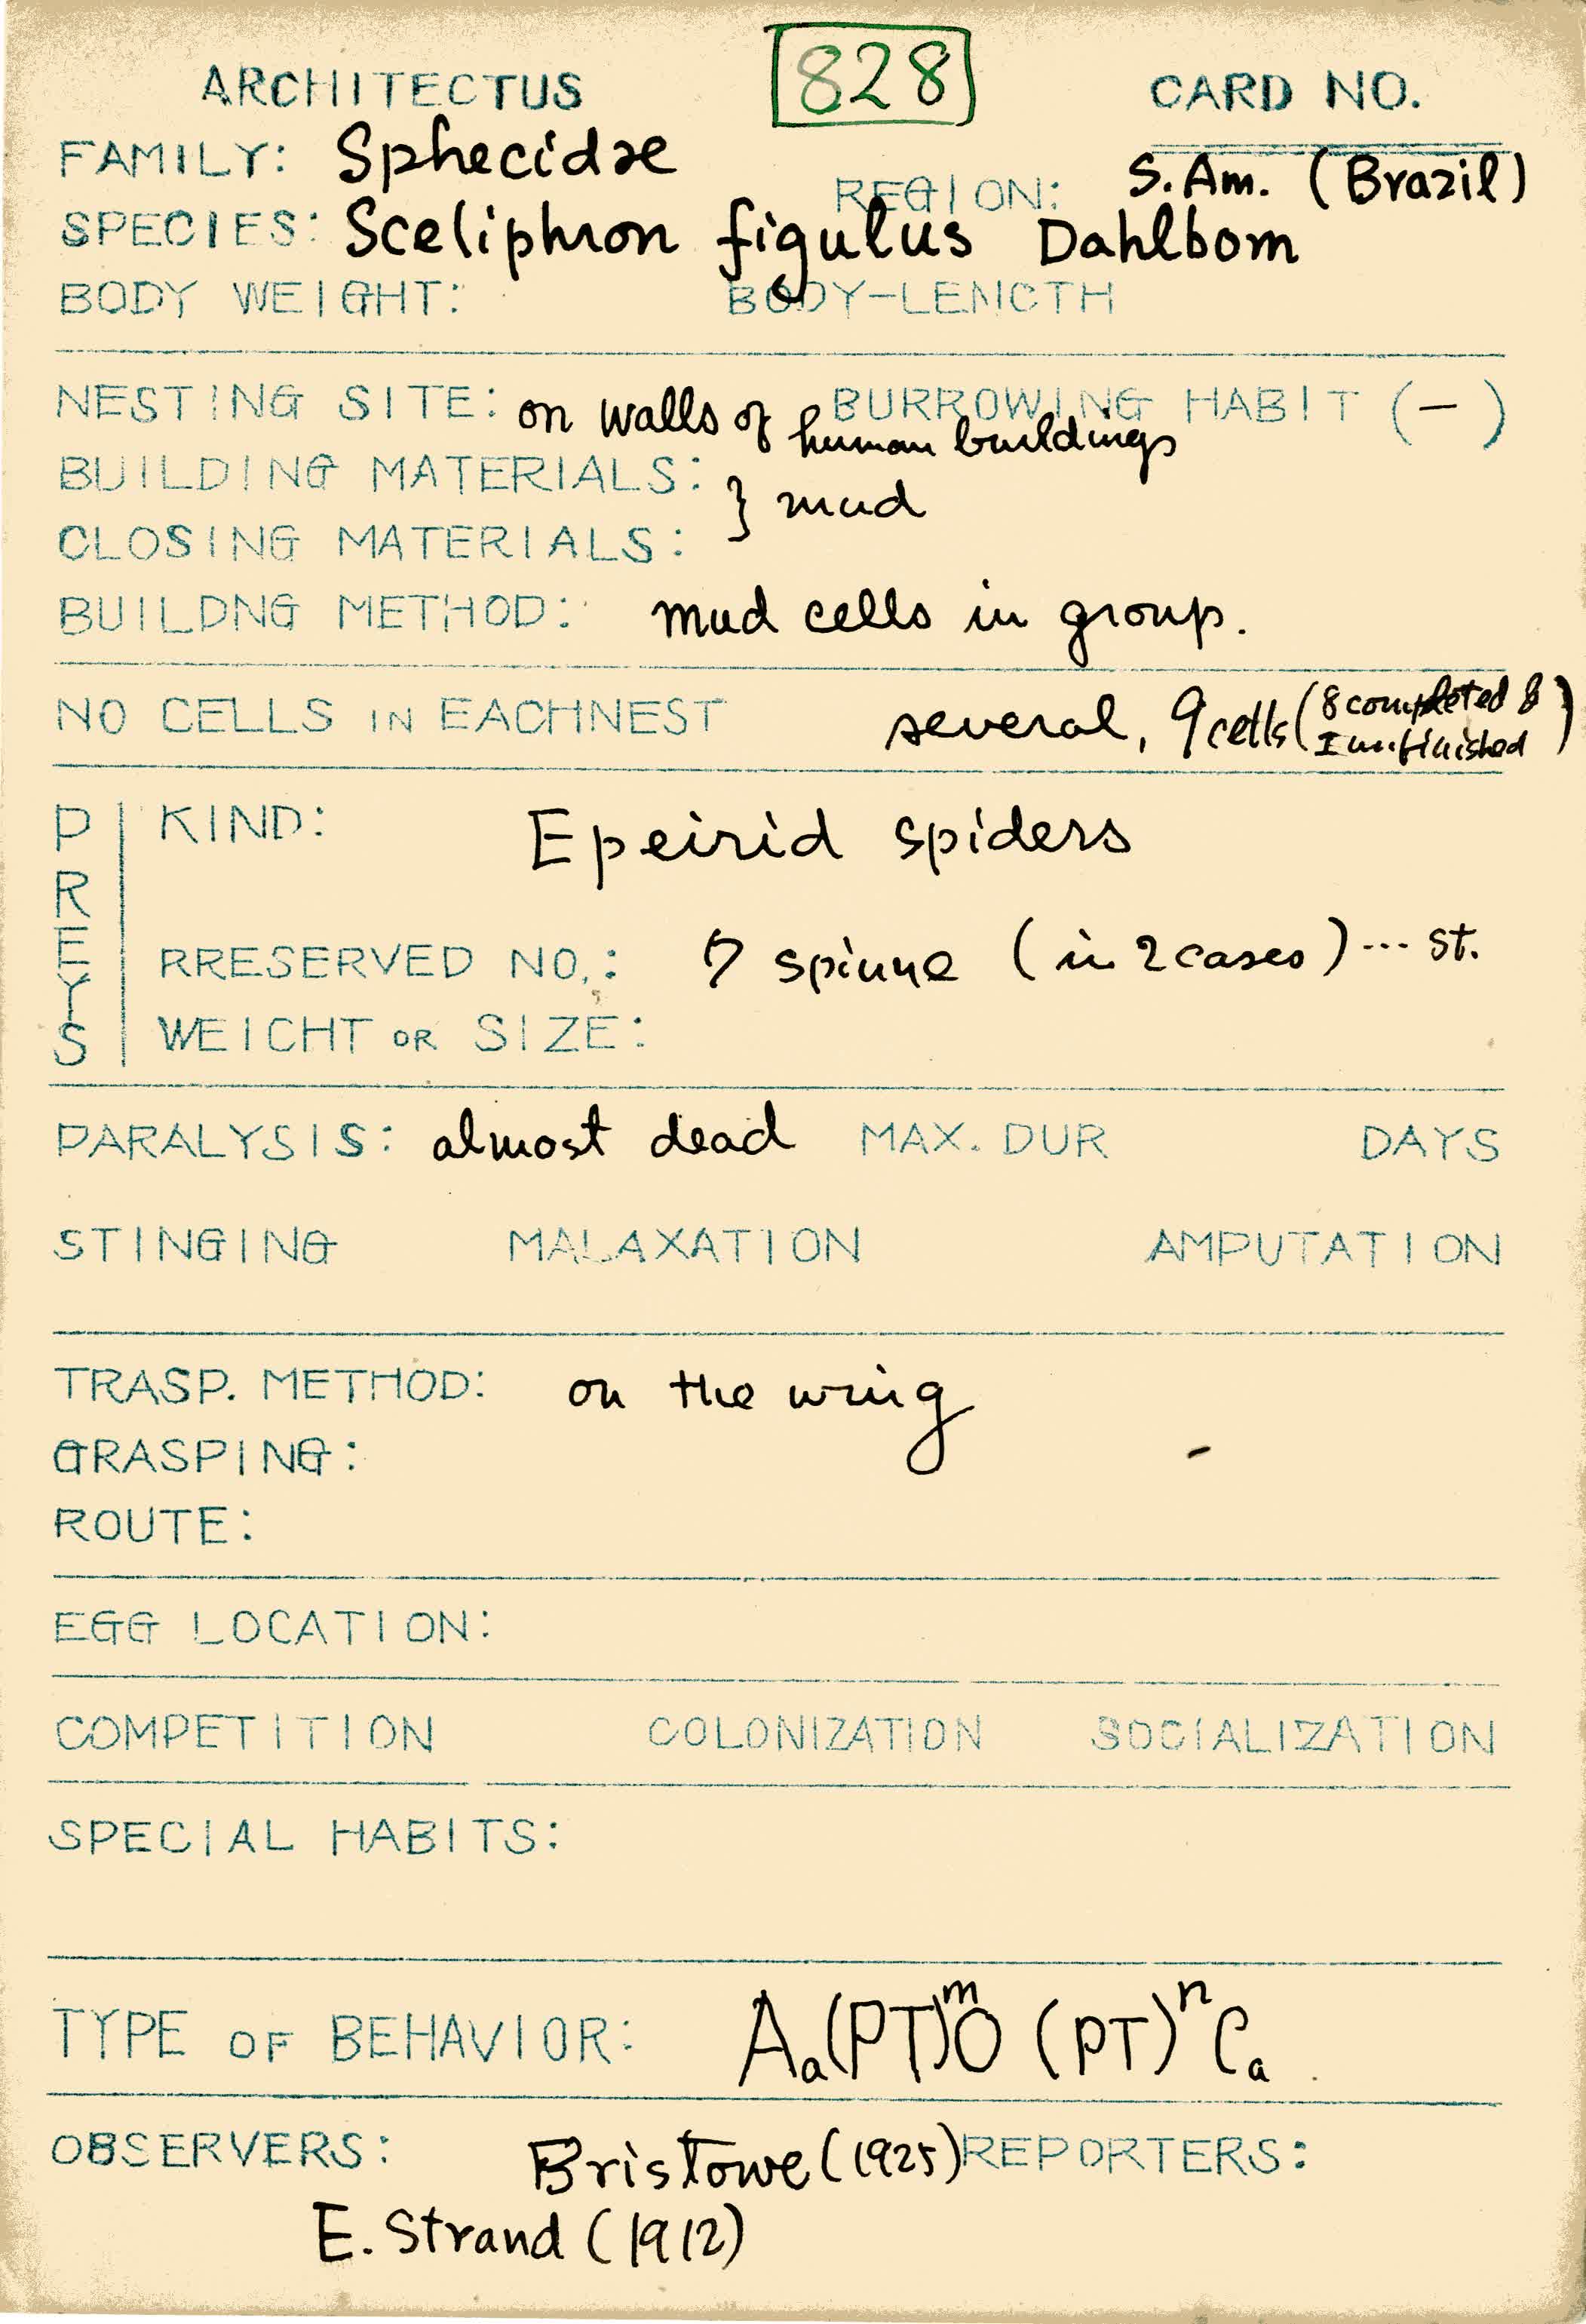 ARCHITECTUS 828 CARD NO.
FAMILY: Sphecidae
REGION: S.Am. (Brazil)
SPECIES: Sceliphron figulus Dahlbom
BODY WEIGHT: BODY-LENCTH
NESTING SITE: on walls of human buildings BURROWING HABIT (-)
BUILDING MATERIALS: } mud
CLOSING MATERIALS:
BUILDNG METHOD: mud cells in group.
NO CELLS IN EACHNEST several, 9 cells (8 completed & 1 unfinished)
PREYS
KIND: Epeirid spiders
RRESERVED NO.: 7 spinne (in 2 cases) --- St.
WEICHT OR SIZE:
PARALYSIS: almost dead MAX. DUR DAYS
STINGING MALAXATION AMPUTATION
TRASP. METHOD: on the wing
GRASPING: -
ROUTE:
EGG LOCATION:
COMPETITION COLONIZATION SOCIALIZATION
SPECIAL HABITS:
TYPE OF BEHAVIOR: Aa(PT)ᵐO (PT)ⁿCa.
OBSERVERS: Bristowe (1925) REPORTERS:
E. Strand (1912)